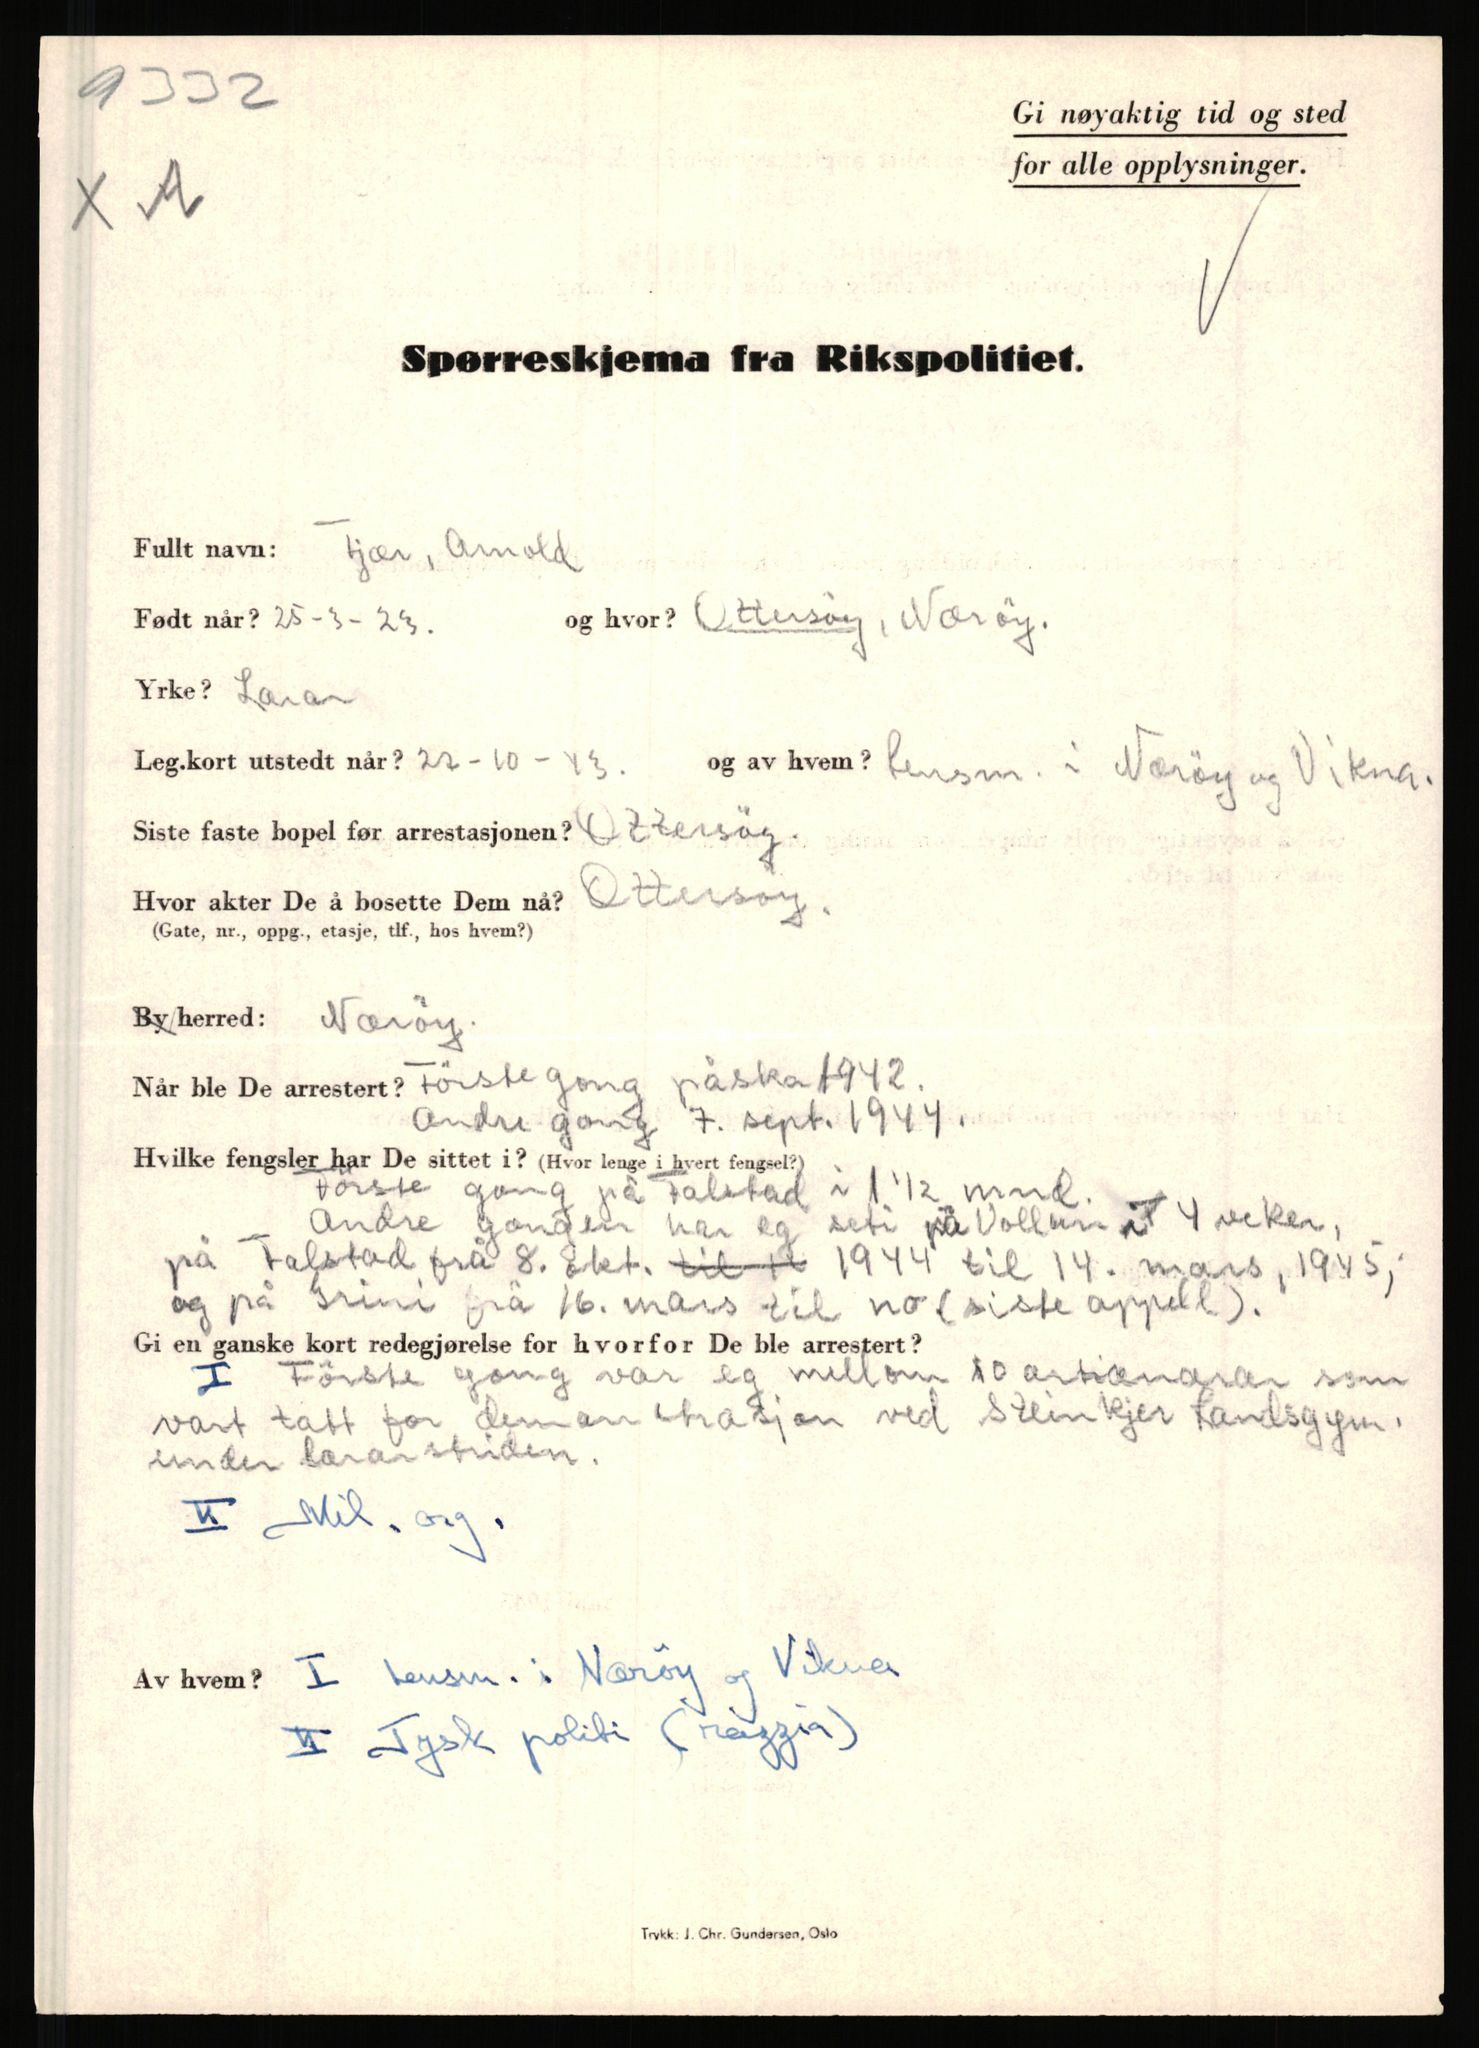 9332
Gi nøyaktig tid og sted
for alle opplysninger.
X A
Spørreskjema fra Rikspolitiet.
Fullt navn: Fjær, Arnold
Født når? 25-3-23. og hvor? Ottersöy, Næröy.
Yrke? Lærar
Leg.kort utstedt når? 22-10-43. og av hvem? Lensm. i Næröy og Vikna.
Siste faste bopel før arrestasjonen? Ottersöy.
Hvor akter De å bosette Dem nå? Ottersöy.
(Gate, nr., oppg., etasje, tlf., hos hvem?)
By/herred: Næröy.
Når ble De arrestert? Förste gong påska 1942.
Andre gong 7. sept. 1944.
Hvilke fengsler har De sittet i? (Hvor lenge i hvert fengsel?)
Förste gong på Falstad i 1 1/2 mnd.
Andre gongen har eg seti på Vollan i 4 veker,
på Falstad frå 8. okt. til 1944 til 14. mars, 1945,
og på Grini frå 16. mars til no (siste appell).
Gi en ganske kort redegjørelse for hvorfor De ble arrestert?
I Förste gong var eg mellom 10 artianarar som
vart tatt for demonstrasjon ved Steinkjer Landsgym.
under lærarstriden.
II Mil. org.
Av hvem? I Lensm. i Næröy og Vikna
II Tysk politi (razzia)
Trykk: J. Chr. Gundersen, Oslo